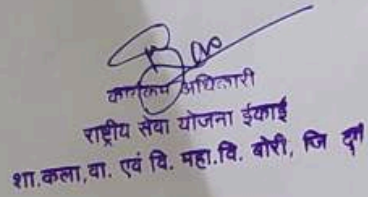 कार्यक्रम अधिकारी
राष्ट्रीय सेवा योजना ईकाई
शा.कला,वा. एवं वि. महा.वि. बोरी, जि दुर्ग